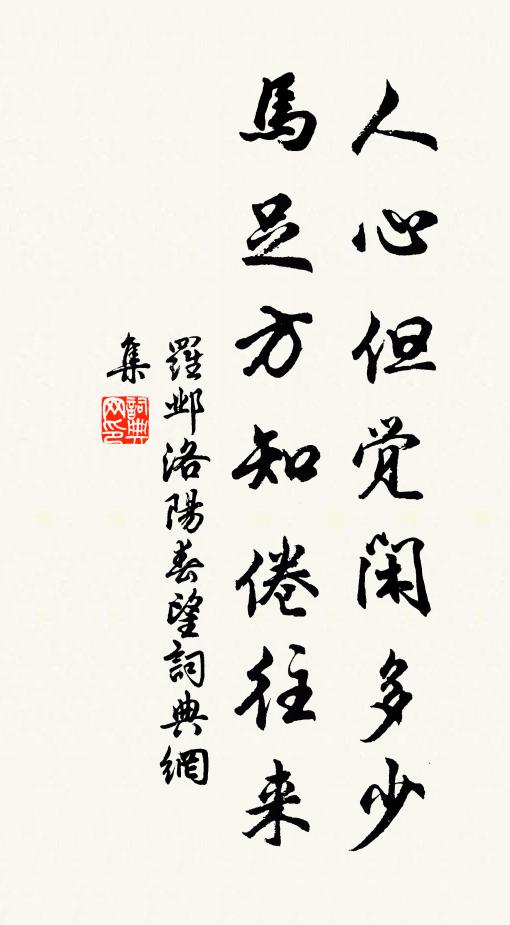 人心但觉闲多少
馬足方知倦往来
羅邺洛陽春望詞典網
集
詞典
网印